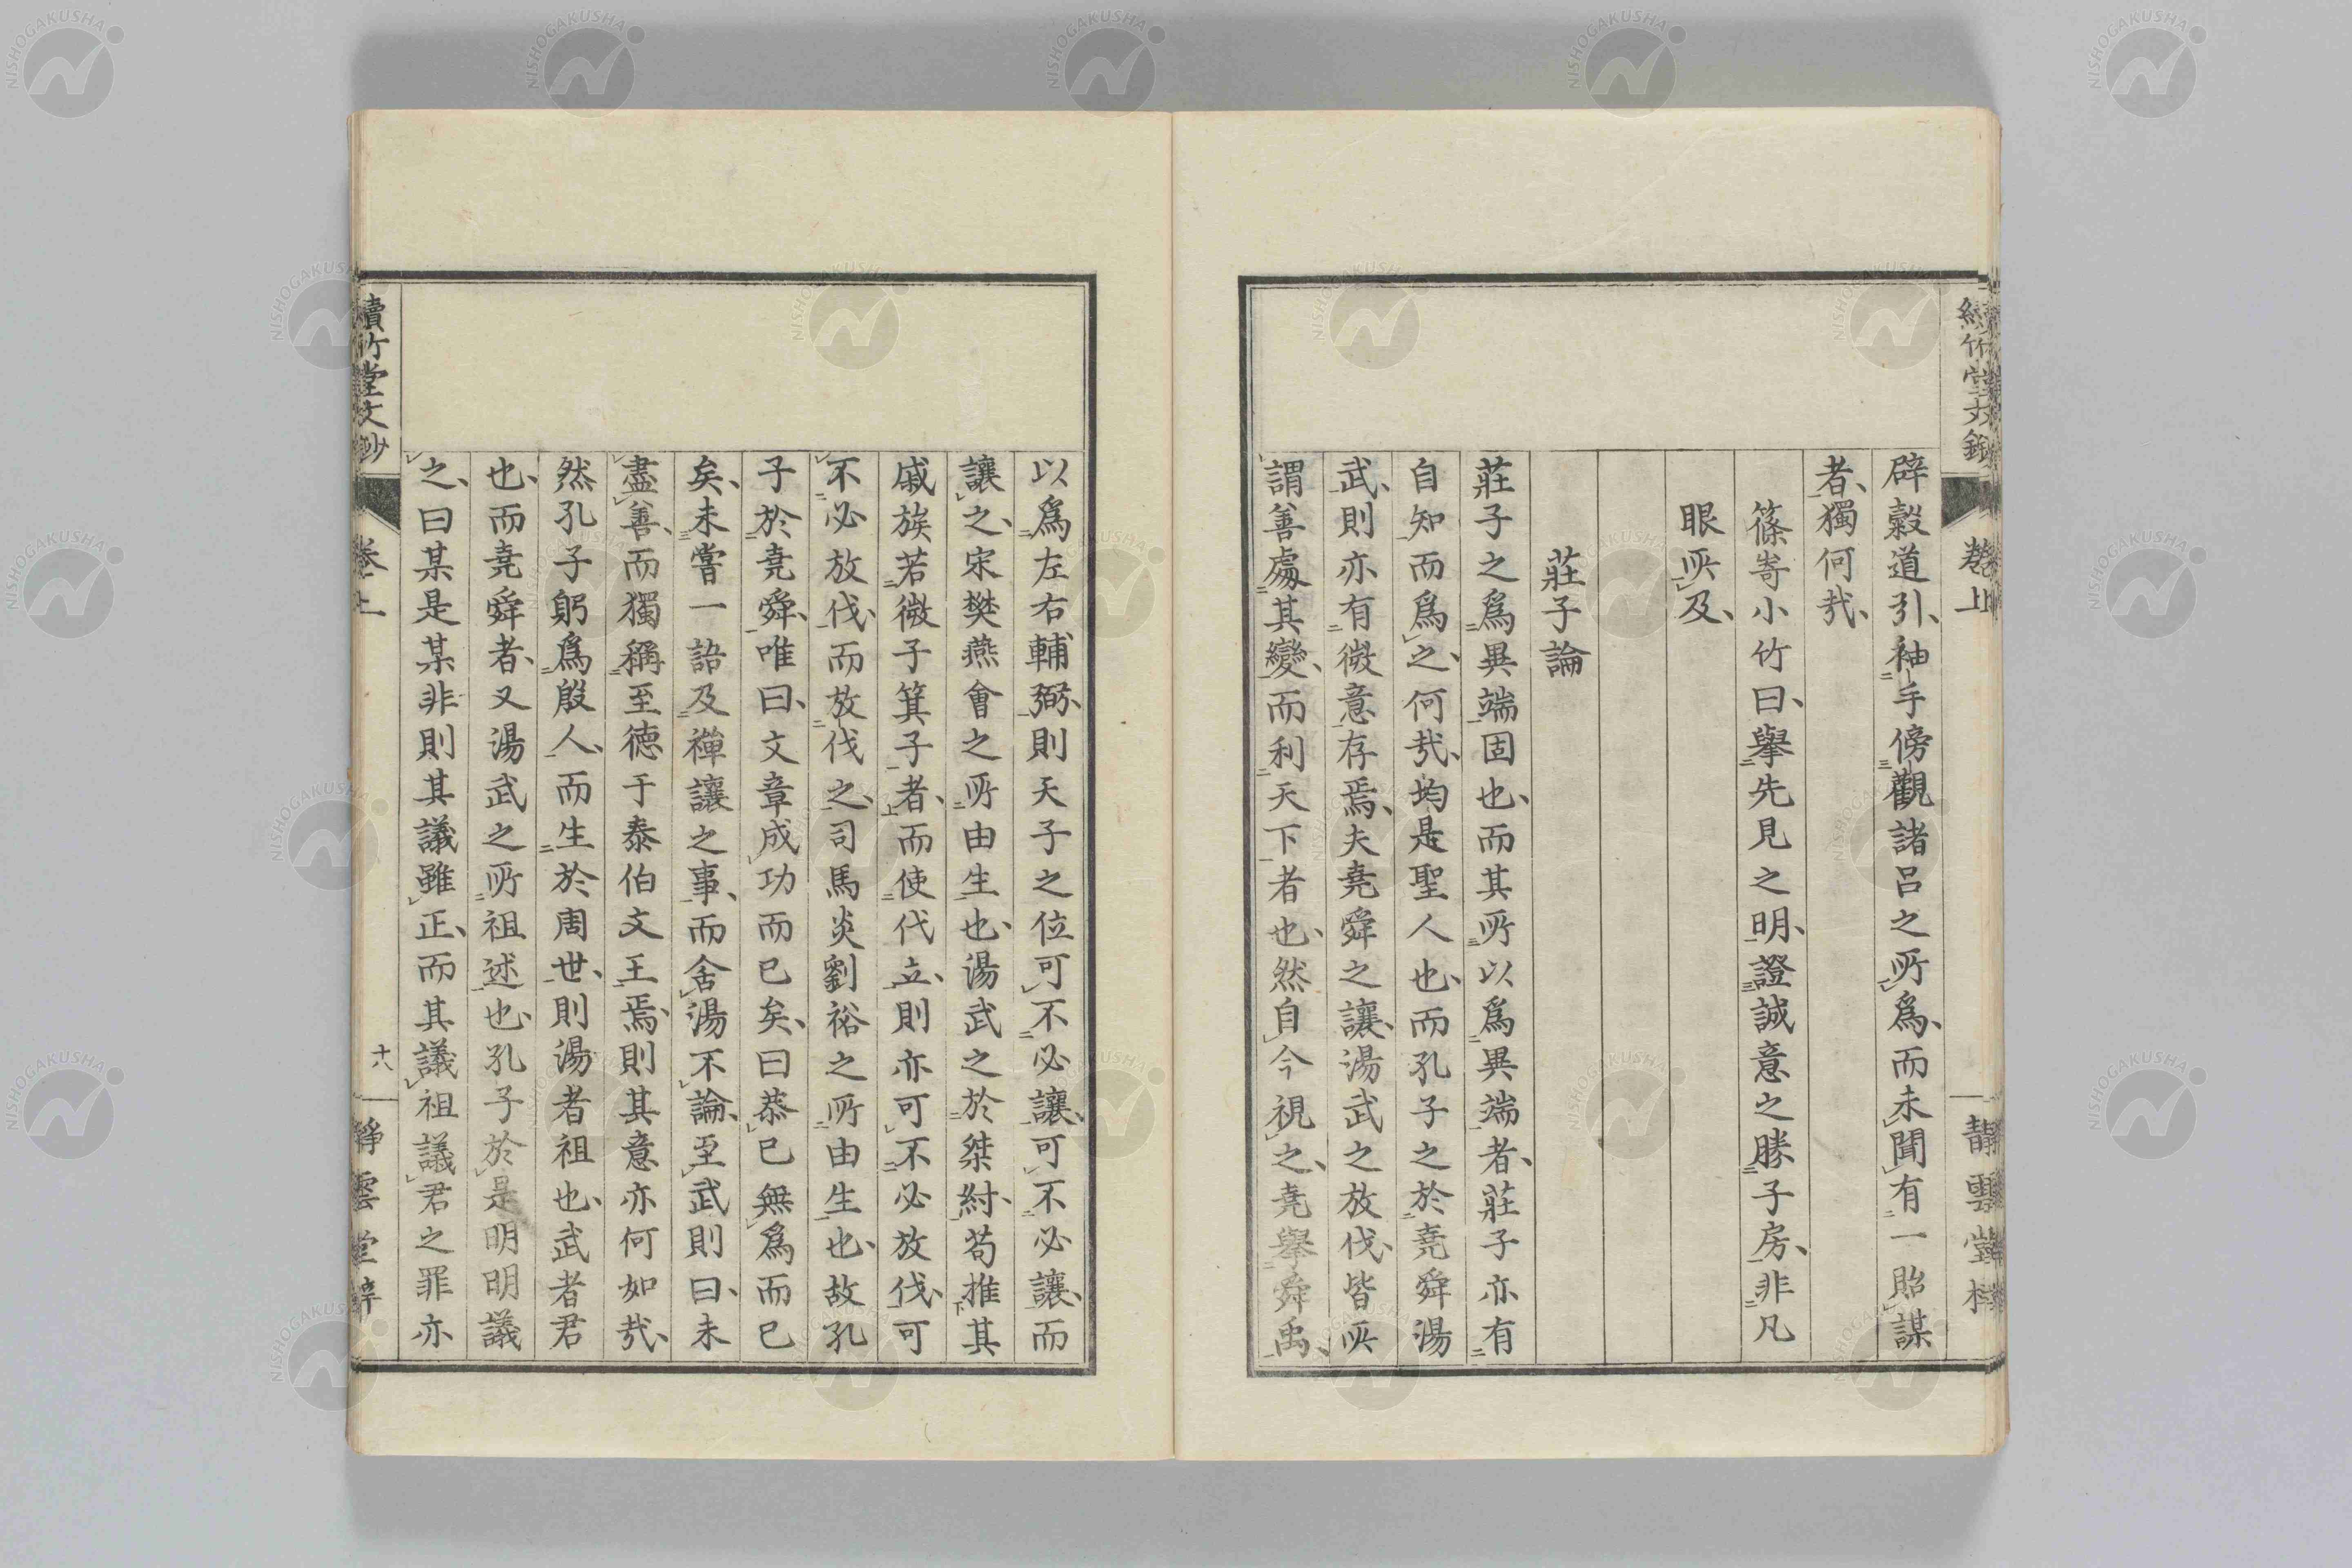 續竹堂文鈔
卷上
辟穀道引、袖手傍觀諸呂之所爲、而未聞有一貽謀
者、獨何哉、
篠嵜小竹曰、擧先見之明、證誠意之勝子房、非凡
眼所及、
莊子論
莊子之爲異端固也、而其所以爲異端者、莊子亦有
自知而爲之、何哉、均是聖人也、而孔子之於堯舜湯
武、則亦有微意存焉、夫堯舜之讓、湯武之放伐、皆所
謂善處其變、而利天下者也、然自今視之、堯擧舜禹、
以爲左右輔弼、則天子之位可不必讓、可不必讓、而
讓之、宋樊燕會之所由生也、湯武之於桀紂、苟推其
戚族若微子箕子者、而使代立、則亦可不必放伐、可
不必放伐、而放伐之、司馬炎劉裕之所由生也、故孔
子於堯舜、唯曰、文章成功而已矣、曰恭已無爲而已
矣、未嘗一語及禪讓之事、而舍湯不論、至武則曰、未
盡善、而獨稱至德于泰伯文王焉、則其意亦何如哉、
然孔子躬爲殷人、而生於周世、則湯者祖也、武者君
也、而堯舜者、又湯武之所祖述也、孔子於是明明議
之、曰某是某非、則其議雖正、而其議祖議君之罪亦
續竹堂文鈔
卷上
十八
靜雲堂梓